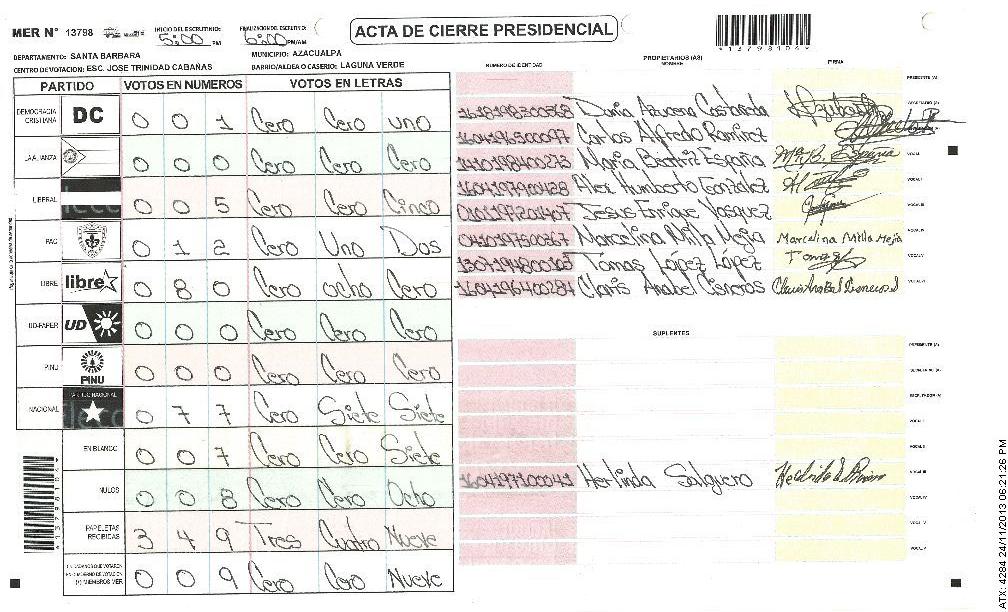 MER N° 13798 INICIO DEL ESCRUTINIO: 5:00 PM FINALIZACION DEL ESCRUTINIO: 6:00 PM/AM ACTA DE CIERRE PRESIDENCIAL
*13798104*
DEPARTAMENTO: SANTA BARBARA MUNICIPIO: AZACUALPA
CENTRO DE VOTACION: ESC. JOSE TRINIDAD CABAÑAS BARRIO/ALDEA O CASERIO: LAGUNA VERDE
PARTIDO VOTOS EN NUMEROS VOTOS EN LETRAS
DEMOCRACIA CRISTIANA DC 0 0 1 Cero Cero uno
LA ALIANZA 0 0 0 Cero Cero Cero
LIBERAL 0 0 5 Cero Cero Cinco
PAC 0 1 2 Cero Uno Dos
LIBRE libre 0 8 0 Cero ocho Cero
UD-FAPER UD 0 0 0 Cero Cero Cero
PINU PINU 0 0 0 Cero Cero Cero
NACIONAL PARTIDO NACIONAL 0 7 7 Cero Siete Siete
EN BLANCO 0 0 7 Cero Cero Siete
NULOS 0 0 8 Cero Cero Ocho
PAPELETAS RECIBIDAS 3 4 9 Tres Cuatro Nueve
CIUDADANOS QUE VOTARON EN CUADERNO DE VOTACION (+) MIEMBROS MER 0 0 9 Cero Cero Nueve
*13798104*
PROPIETARIOS (AS)
NUMERO DE IDENTIDAD NOMBRE FIRMA
PRESIDENTE (A)
Dania Azucena Castañeda SECRETARIO (A)
Carlos Alfredo Ramirez
Maria Beatriz España Ma. B. España VOCAL I
Alex Humberto Gonzalez VOCAL II
Jesus Enrique Vasquez VOCAL III
Marcelina Milla Mejia Marcelina Milla Mejia VOCAL IV
1307194800163 Tomas López López Tomas VOCAL V
Claris Anabel Cisneros
SUPLENTES
PRESIDENTE (A)
SECRETARIO (A)
ESCRUTADOR (A)
VOCAL I
VOCAL II
1604197100041 Herlinda Salguero VOCAL III
VOCAL IV
VOCAL V
ATX: 4284 24/11/2013 06:21:26 PM